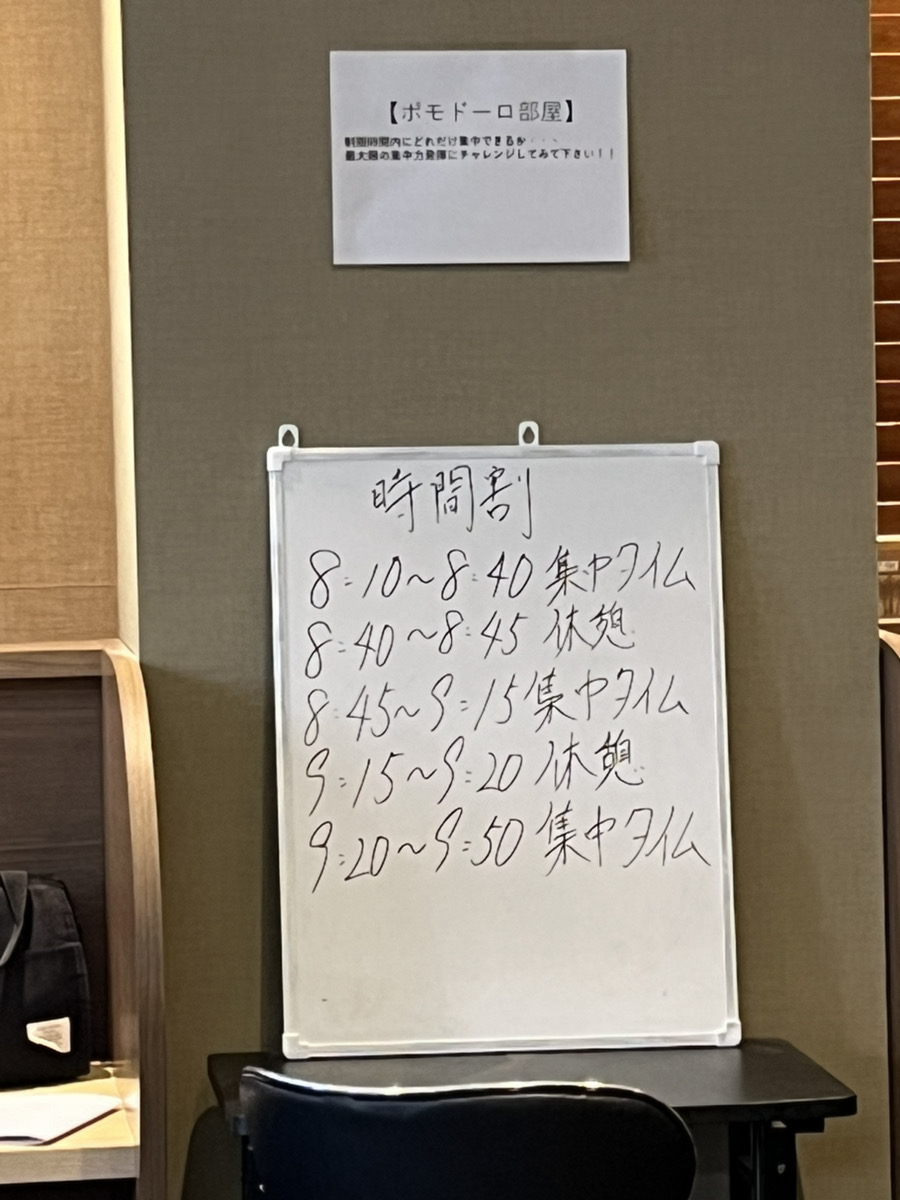 【ポモドーロ部屋】
制限時間内にどれだけ集中できるか・・・
最大限の集中力発揮にチャレンジしてみて下さい！！
時間割
8:10～8:40 集中タイム
8:40～8:45 休憩
8:45～9:15 集中タイム
9:15～9:20 休憩
9:20～9:50 集中タイム